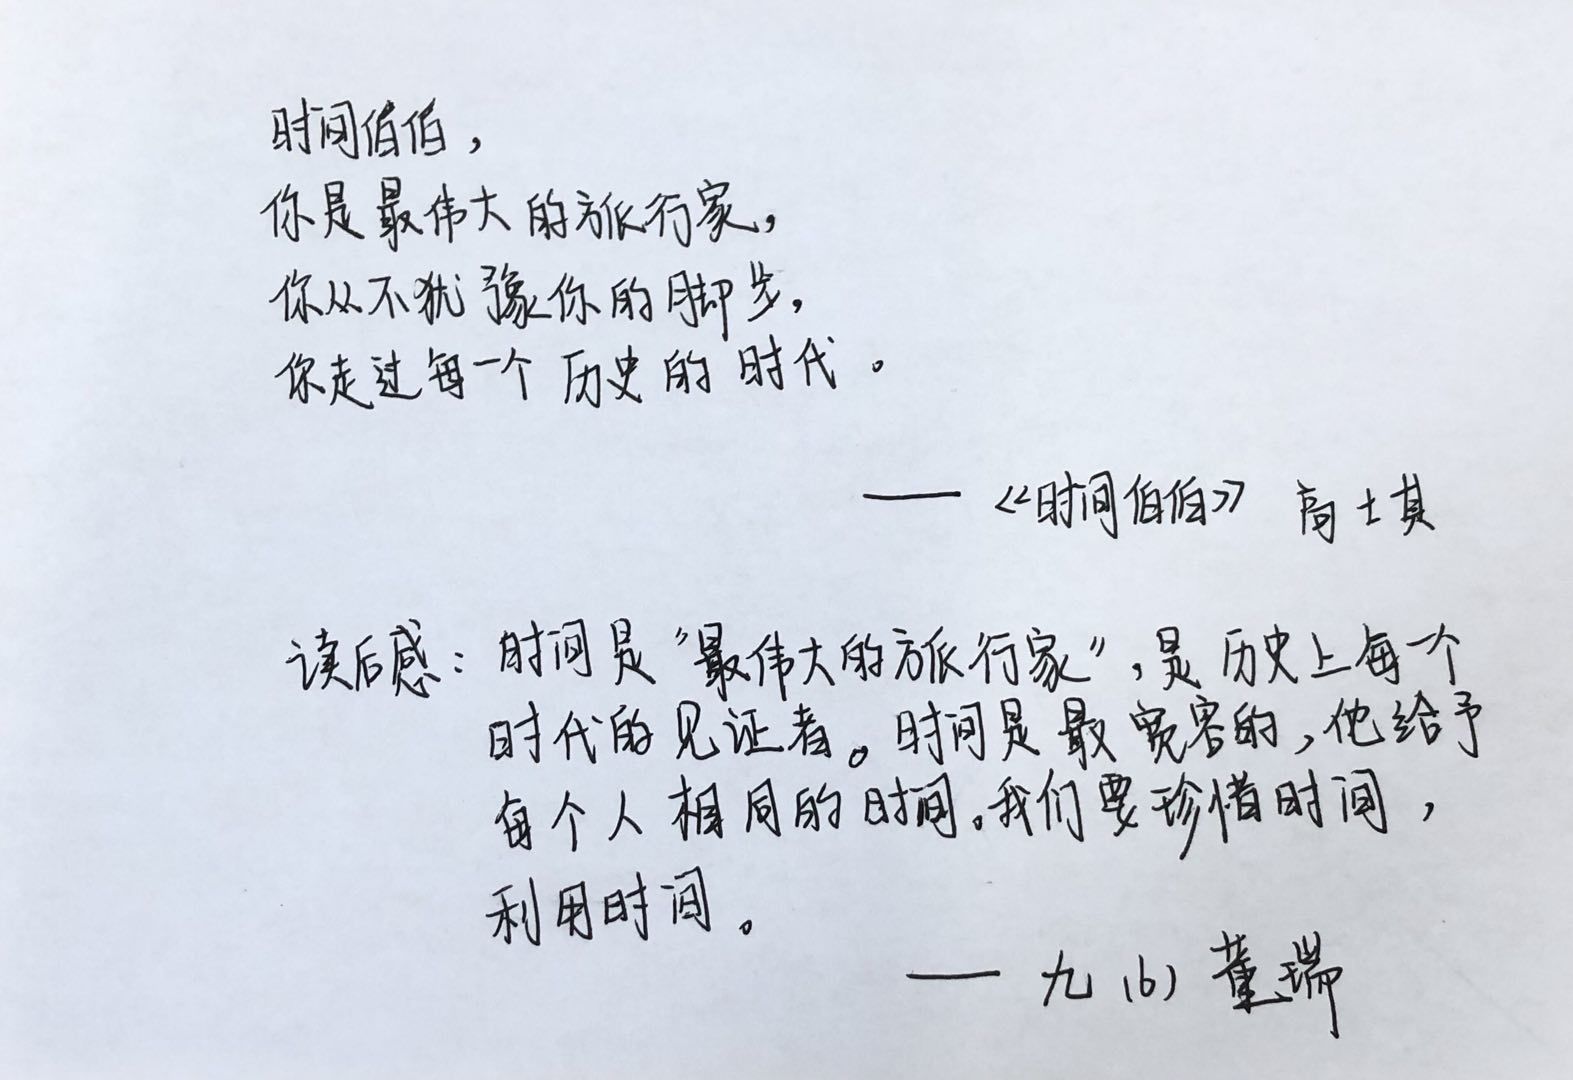 时间伯伯，
你是最伟大的旅行家，
你从不犹豫你的脚步，
你走过每一个历史的时代。
——《时间伯伯》 高士其
读后感：时间是“最伟大的旅行家”，是历史上每一个
时代的见证者。时间是最宽容的，他给予
每个人相同的时间。我们要珍惜时间，
利用时间。
——九（6）董瑞